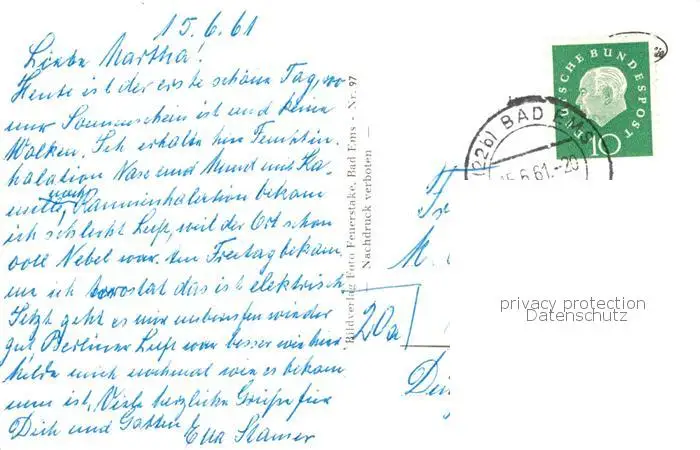 15.6.61
Liebe Martha!
Heute ist der erste schöne Tag, wo
nur Sonnenschein ist und keine
Wolken. Ich erhalte hier
halation Nase und Mund mit Ka-
nach bekam
ich schlecht Luft, weil der Ort schon
voll Nebel war. Am Freitag bekam
ich das ist elektrisch
Jetzt geht es mir unberufen wieder
gut, Berliner Luft war besser wie hier
Melde mich nochmal wie es bekom
men ist, Viele herzliche Grüße für
Dich und Gatten
Eva
Bildverlag Foto Feuerstake, Bad Ems - Nr. 97
— Nachdruck verboten —
DEUTSCHE BUNDESPOST
10
(22b) BAD EMS
15.6.61.-20
M.
20a
privacy protection
Datenschutz